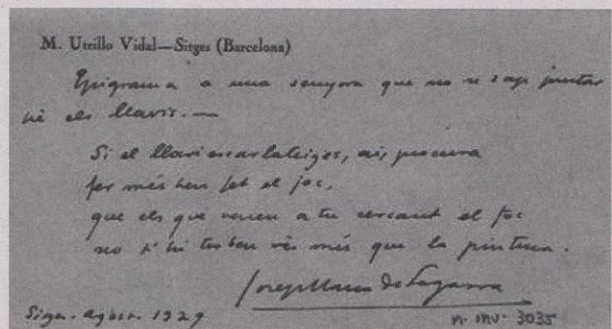 M. Utrillo Vidal—Sitges (Barcelona)
Epigrama a una senyora que no se sap pintar
bé els llavis.—
Si el llavi escarlateiges, ai, procura
fer més ben fet el joc,
que els que venen a tu cercant el foc
no s'hi troben res més que la pintura.
Josep Maria de Sagarra
Sitges. Agost. 1929
n. inv. 3035